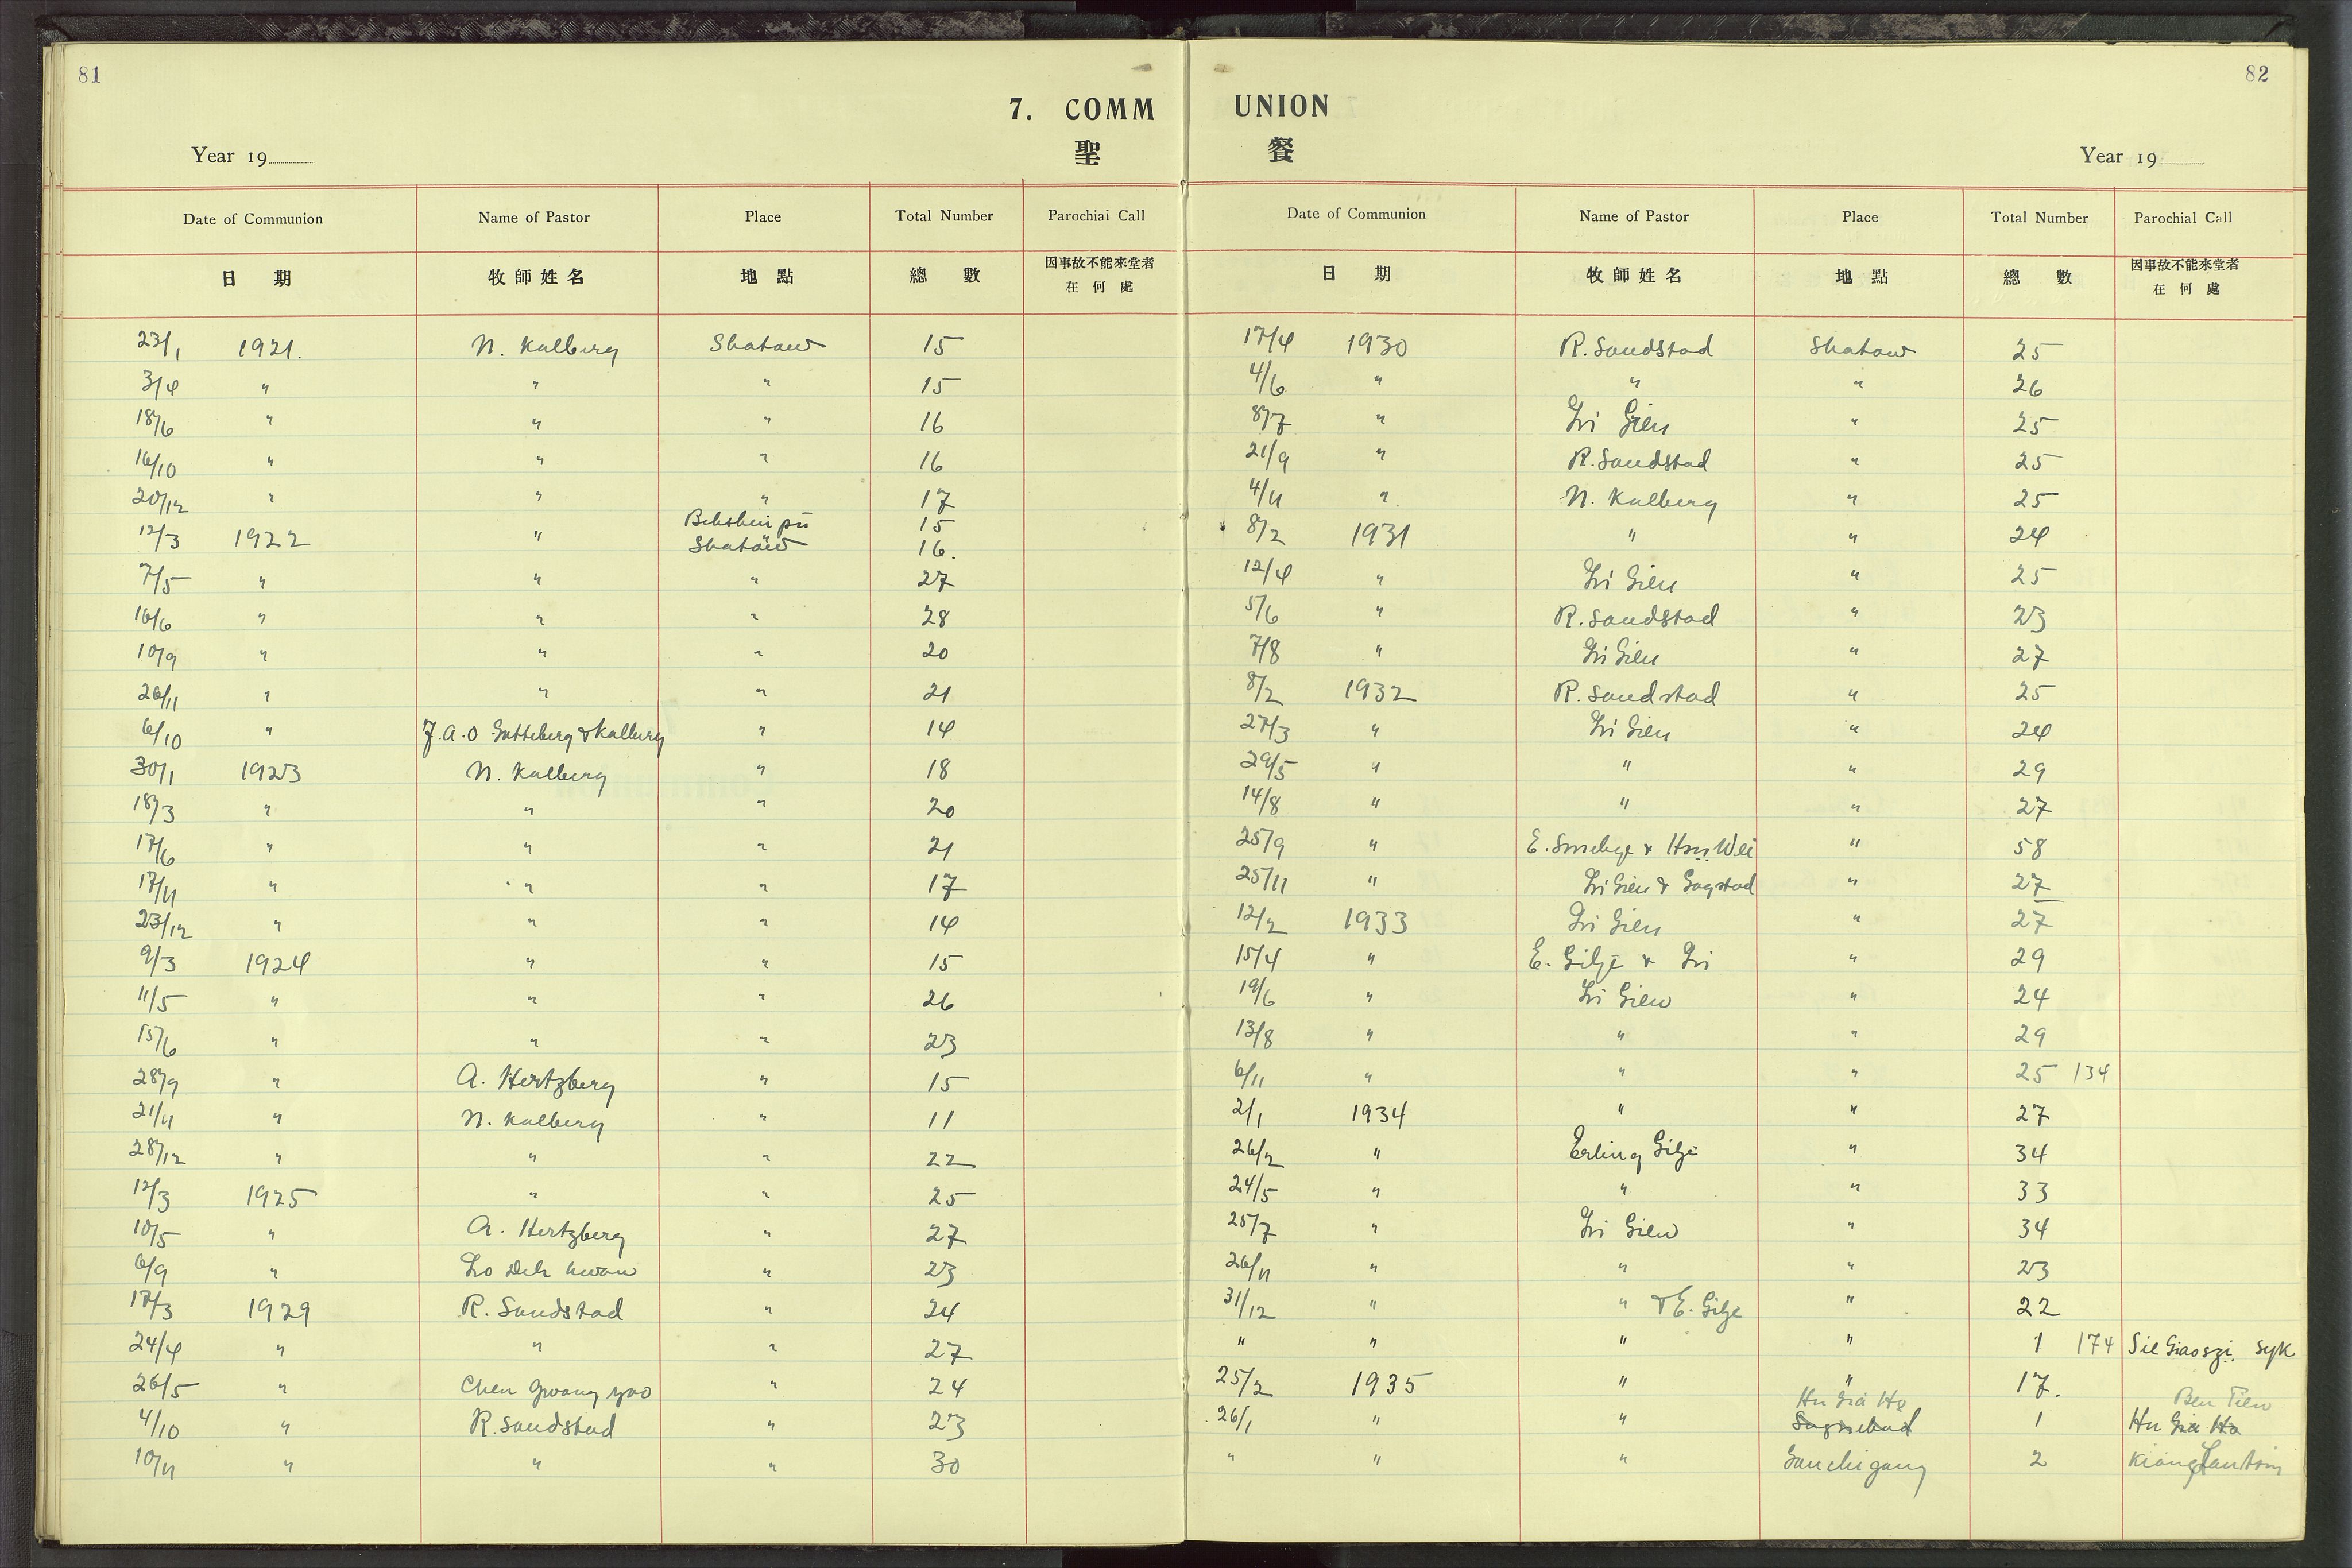 81
7. COMM
聖
Year 19
Date of Communion Name of Pastor Place Total Number Parochial Call
日 期 牧師姓名 地 點 總 數 因事故不能來堂者
在 何 處
23/1 1921. N. Kalberg Shatow 15
3/4 " " " 15
18/6 " " " 16
16/10 " " " 16
20/12 " " " 17
12/3 1922 " 15
Shatow 16.
7/5 " " " 27
16/6 " " " 28
10/9 " " " 20
26/11 " " " 21
6/10 " J.A.O. Gotteberg & Kalberg " 14
30/1 1923 N. Kalberg " 18
18/3 " " " 20
17/6 " " " 21
17/11 " " " 17
23/12 " " " 14
9/3 1924 " " 15
11/5 " " " 26
15/6 " " " 23
28/9 " A. Hertzberg " 15
21/11 " N. Kalberg " 11
28/12 " " " 22
12/3 1925 " " 25
10/5 " A. Hertzberg " 27
6/9 " " 23
17/3 1929 R. Sandstad " 24
24/4 " " " 27
26/5 " Chen Gwang yao " 24
4/10 " R. Sandstad " 23
10/11 " " " 30
82
UNION
餐
Year 19
Date of Communion Name of Pastor Place Total Number Parochial Call
日 期 牧師姓名 地 點 總 數 因事故不能來堂者
在 何 處
17/4 1930 R. Sandstad Shatow 25
4/6 " " " 26
8/7 " Li Gien " 25
21/9 " R. Sandstad " 25
4/11 " N. Kalberg " 25
8/2 1931 " " 24
12/4 " Li Gien " 25
5/6 " R. Sandstad " 23
7/8 " Li Gien " 27
8/2 1932 R. Sandstad " 25
27/3 " Li Gien " 24
29/5 " " " 29
14/8 " " " 27
25/9 " E. & Hsü Wei " 58
25/11 " Li Gien & Sagstad " 27
12/2 1933 Li Gien " 27
15/4 " E. Gilje & Li " 29
19/6 " Li Gien " 24
13/8 " " " 29
6/11 " " " 25 134
2/1 1934 " " 27
26/2 " Erling Gilje " 34
24/5 " " " 33
25/7 " Li Gien " 34
26/11 " " " 23
31/12 " " & E. Gilje " 22
" " " " 1 174 Sie Giaoszi syk
25/2 1935 " " 17.
Hu Gia Ho Ben Tien
26/1 " " 1 Hu Gia Ho
" " " 2